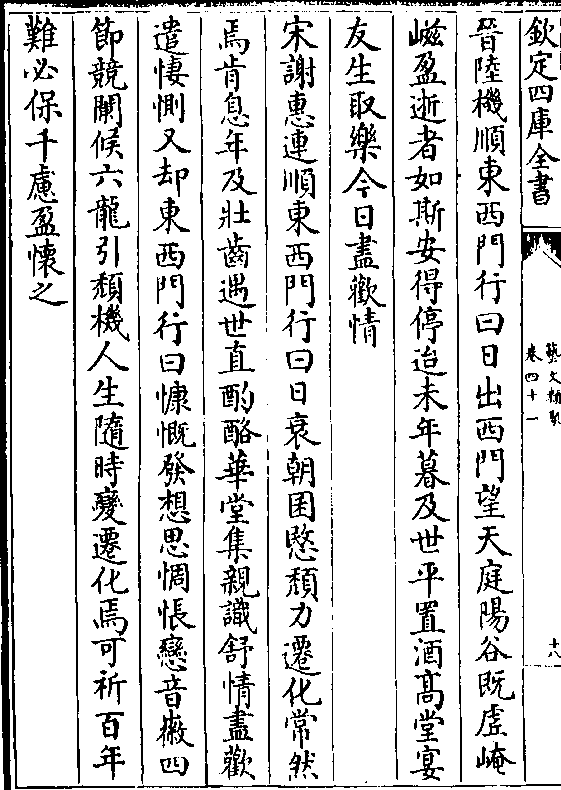 欽定四庫全書
藝文類聚
卷四十一
十八
晉陸機順東西門行曰日出西門望天庭陽谷既虛崦
嵫盈逝者如斯安得停迨未年暮及世平置酒高堂宴
友生取樂今日盡歡情
宋謝惠連順東西門行曰日衰朝困愍頽力遷化常然
焉肯息年及壯齒遇世直酌酪華堂集親識舒情盡歡
遣悽惻又却東西門行曰慷慨發想思惆悵戀音徽四
節競闌候六龍引頽機人生隨時變遷化焉可祈百年
難必保千慮盈懷之